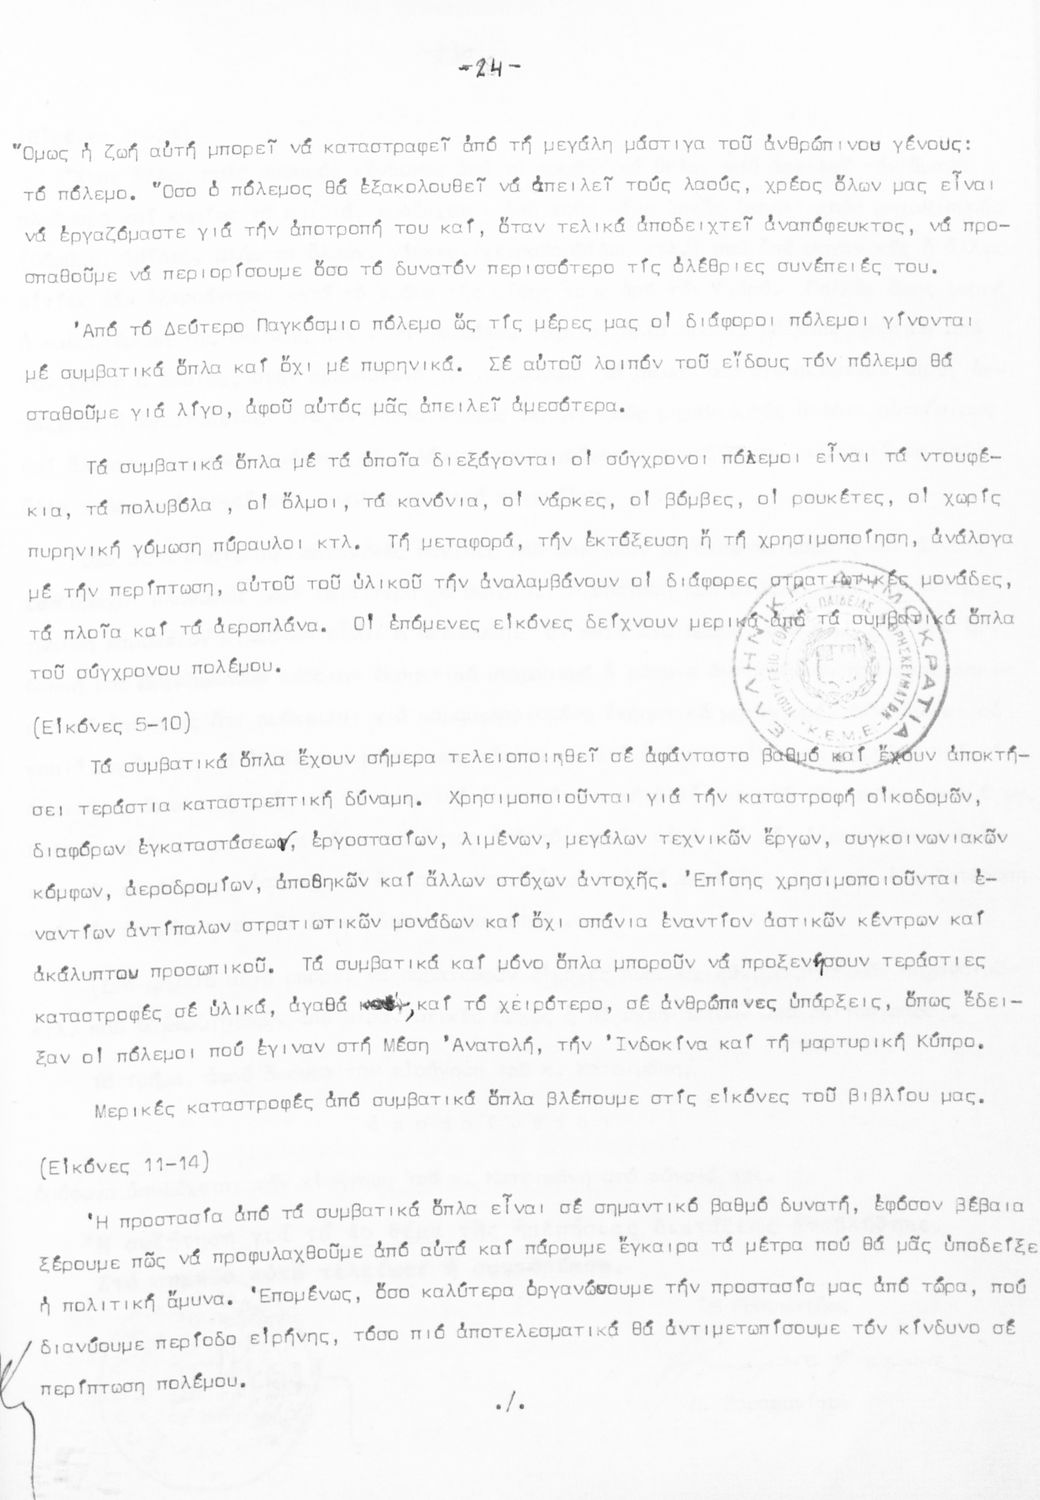 -24-
Ὅμως ἡ ζωή αὐτή μπορεῖ νά καταστραφεῖ ἀπό τή μεγάλη μάστιγα τοῦ ἀνθρώπινου γένους:
τό πόλεμο. Ὅσο ὁ πόλεμος θά ἐξακολουθεῖ νά ἀπειλεῖ τούς λαούς, χρέος ὅλων μας εἶναι
νά ἐργαζόμαστε γιά τήν ἀποτροπή του καί, ὅταν τελικά ἀποδειχτεῖ ἀναπόφευκτος, νά προ-
σπαθοῦμε νά περιορίσουμε ὅσο τό δυνατόν περισσότερο τίς ὀλέθριες συνέπειές του.
Ἀπό τό Δεύτερο Παγκόσμιο πόλεμο ὥς τίς μέρες μας οἱ διάφοροι πόλεμοι γίνονται
μέ συμβατικά ὅπλα καί ὄχι μέ πυρηνικά. Σέ αὐτοῦ λοιπόν τοῦ εἴδους τόν πόλεμο θά
σταθοῦμε γιά λίγο, ἀφοῦ αὐτός μᾶς ἀπειλεῖ ἀμεσότερα.
Τά συμβατικά ὅπλα μέ τά ὁποῖα διεξάγονται οἱ σύγχρονοι πόλεμοι εἶναι τά ντουφέ-
κια, τά πολυβόλα , οἱ ὅλμοι, τά κανόνια, οἱ νάρκες, οἱ βόμβες, οἱ ρουκέτες, οἱ χωρίς
πυρηνική γόμωση πύραυλοι κτλ. Τή μεταφορά, τήν ἐκτόξευση ἤ τή χρησιμοποίηση, ἀνάλογα
μέ τήν περίπτωση, αὐτοῦ τοῦ ὑλικοῦ τήν ἀναλαμβάνουν οἱ διάφορες στρατιωτικές μονάδες,
τά πλοῖα καί τά ἀεροπλάνα. Οἱ ἑπόμενες εἰκόνες δείχνουν μερικά ἀπό τά συμβατικά ὅπλα
τοῦ σύγχρονου πολέμου.
ΕΛΛΗΝΙΚΗ ΔΗΜΟΚΡΑΤΙΑ
ΥΠΟΥΡΓΕΙΟ ΕΘΝΙΚΗΣ ΠΑΙΔΕΙΑΣ ΘΡΗΣΚΕΥΜΑΤΩΝ
Κ.Ε.Μ.Ε.
(Εἰκόνες 5-10)
Τά συμβατικά ὅπλα ἔχουν σήμερα τελειοποιηθεῖ σέ ἀφάνταστο βαθμό καί ἔχουν ἀποκτή-
σει τεράστια καταστρεπτική δύναμη. Χρησιμοποιοῦνται γιά τήν καταστροφή οἰκοδομῶν,
διαφόρων ἐγκαταστάσεων, ἐργοστασίων, λιμένων, μεγάλων τεχνικῶν ἔργων, συγκοινωνιακῶν
κόμφων, ἀεροδρομίων, ἀποθηκῶν καί ἄλλων στόχων ἀντοχῆς. Ἐπίσης χρησιμοποιοῦνται ἐ-
ναντίων ἀντίπαλων στρατιωτικῶν μονάδων καί ὄχι σπάνια ἐναντίον ἀστικῶν κέντρων καί
ἀκάλυπτου προσωπικοῦ. Τά συμβατικά καί μόνο ὅπλα μποροῦν νά προξενήσουν τεράστιες
καταστροφές σέ ὑλικά, ἀγαθά , καί τό χειρότερο, σέ ἀνθρώπινες ὑπάρξεις, ὅπως ἔδει-
ξαν οἱ πόλεμοι πού ἔγιναν στή Μέση Ἀνατολή, τήν Ἰνδοκίνα καί τή μαρτυρική Κύπρο.
Μερικές καταστροφές ἀπό συμβατικά ὅπλα βλέπουμε στίς εἰκόνες τοῦ βιβλίου μας.
(Εἰκόνες 11-14)
Ἡ προστασία ἀπό τά συμβατικά ὅπλα εἶναι σέ σημαντικό βαθμό δυνατή, ἐφόσον βέβαια
ξέρουμε πῶς νά προφυλαχθοῦμε ἀπό αὐτά καί πάρουμε ἔγκαιρα τά μέτρα πού θά μᾶς ὑποδείξε
ἡ πολιτική ἄμυνα. Ἑπομένως, ὅσο καλύτερα ὀργανώσουμε τήν προστασία μας ἀπό τώρα, πού
διανύουμε περίοδο εἰρήνης, τόσο πιό ἀποτελεσματικά θά ἀντιμετωπίσουμε τόν κίνδυνο σέ
περίπτωση πολέμου.
./.